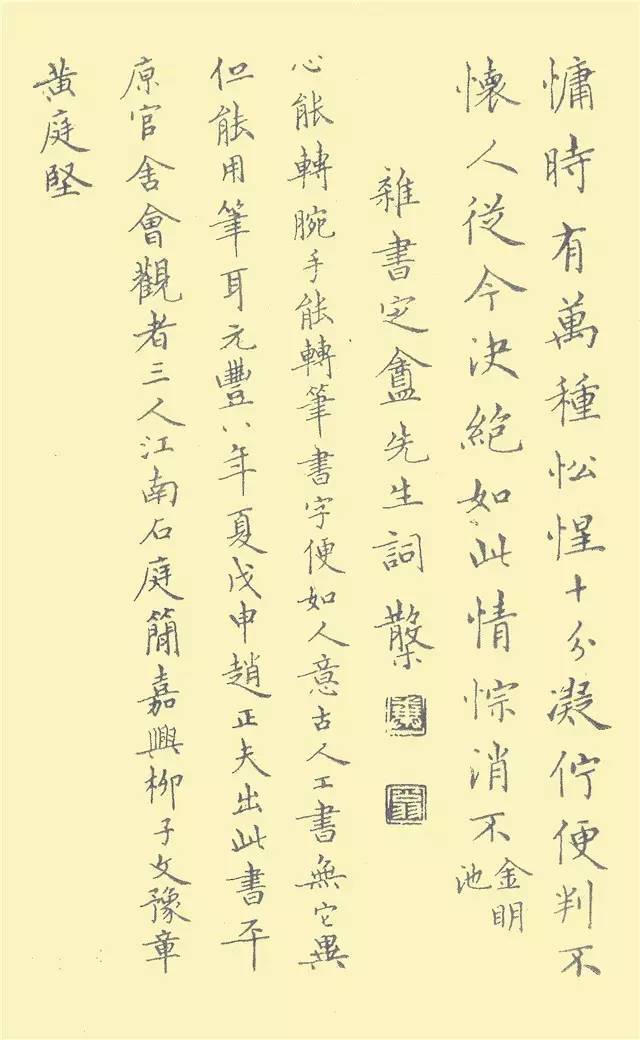 慵時有萬種忪惺十分凝佇便判不
懷人從今決絕如此情悰消不
金明
池
雜書定盦先生詞 散木
心能轉腕手能轉筆書字便如人意古人工書無它異
但能用筆耳元豐八年夏戊申趙正夫出此書平
原官舍會觀者三人江南石庭簡嘉興柳子文豫章
黃庭堅